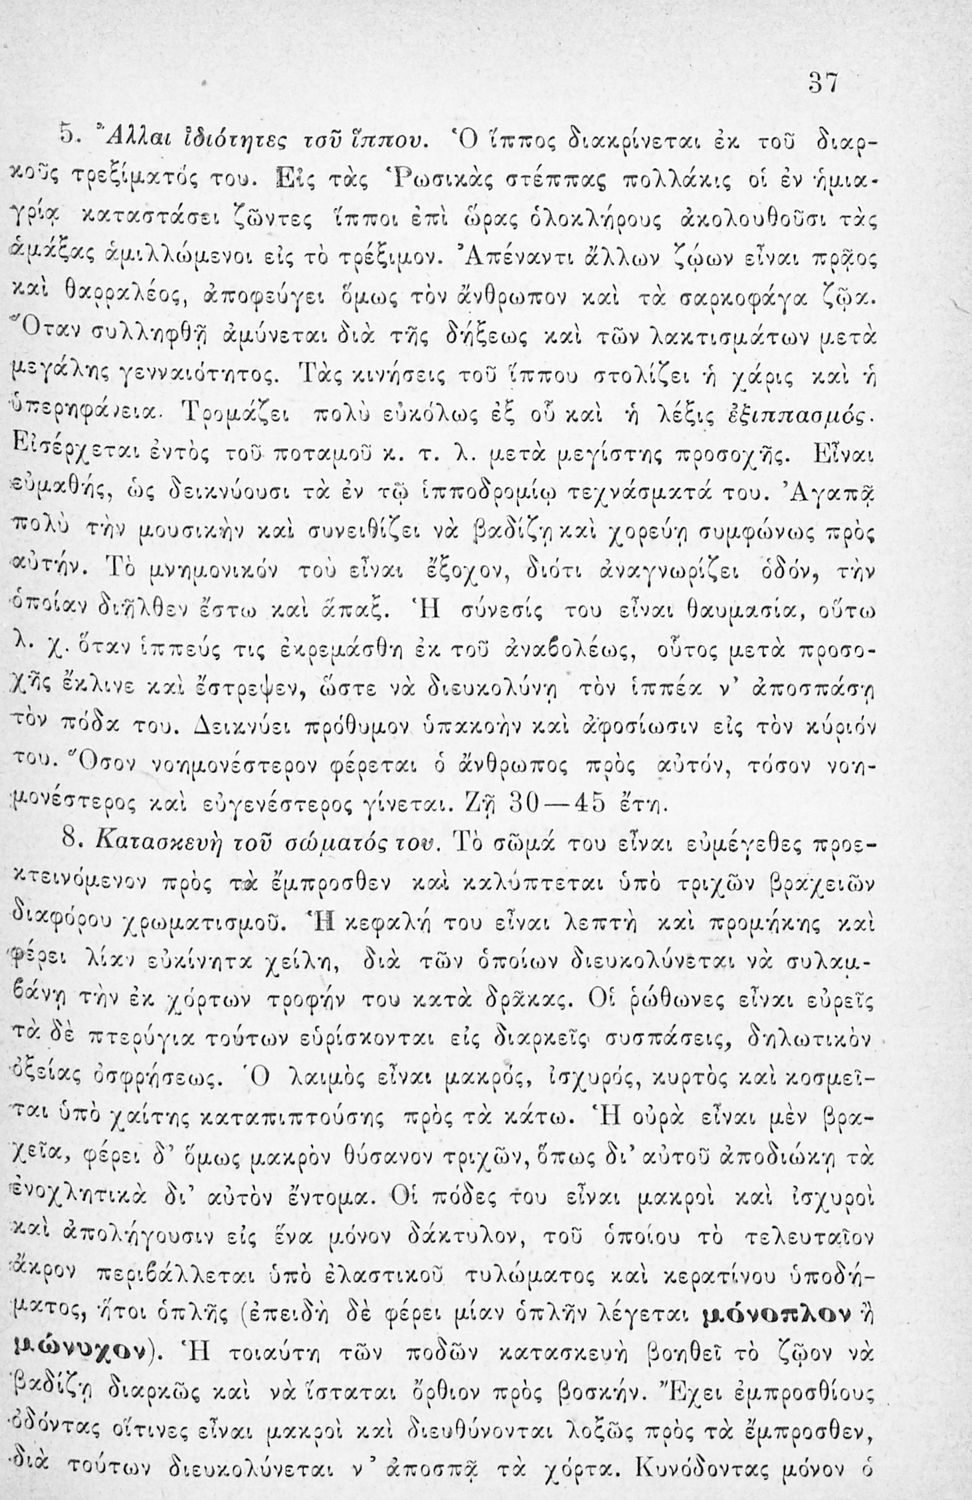 37
5. Ἄλλαι ἰδιότητες τσῦ ἵππου. Ὁ ἵππος διακρίνεται ἐκ τοῦ διαρ-
κοῦς τρεξίματός του. Εἰς τὰς Ῥωσικὰς στέππας πολλάκις οἱ ἐν ἡμια-
γρίᾳ καταστάσει ζῶντες ἵπποι ἐπὶ ὥρας ὁλοκλήρους ἀκολουθοῦσι τὰς
ἁμάξας ἁμιλλώμενοι εἰς τὸ τρέξιμον. Ἀπέναντι ἄλλων ζῴων εἶναι πρᾷος
καὶ θαρραλέος, ἀποφεύγει ὅμως τὸν ἄνθρωπον καὶ τὰ σαρκοφάγα ζῷα.
Ὅταν συλληφθῇ ἀμύνεται διὰ τῆς δήξεως καὶ τῶν λακτισμάτων μετὰ
μεγάλης γενναιότητος. Τὰς κινήσεις τοῦ ἵππου στολίζει ἡ χάρις καὶ ἡ
ὑπερηφάνεια. Τρομάζει πολὺ εὐκόλως ἐξ οὗ καὶ ἡ λέξις ἐξιππασμός.
Εἰσέρχεται ἐντὸς τοῦ ποταμοῦ κ. τ. λ. μετὰ μεγίστης προσοχῆς. Εἶναι
εὐμαθής, ὡς δεικνύουσι τὰ ἐν τῷ ἱπποδρομίῳ τεχνάσματά του. Ἀγαπᾷ
πολὺ τὴν μουσικὴν καὶ συνειθίζει νὰ βαδίζῃ καὶ χορεύῃ συμφώνως πρὸς
αὐτήν. Τὸ μνημονικόν τοὺ εἶναι ἔξοχον, διότι ἀναγνωρίζει ὁδόν, τὴν
ὁποίαν διῆλθεν ἔστω καὶ ἅπαξ. Ἡ σύνεσίς του εἶναι θαυμασία, οὕτω
λ. χ. ὅταν ἱππεύς τις ἐκρεμάσθη ἐκ τοῦ ἀναβολέως, οὗτος μετὰ προσο-
χῆς ἔκλινε καὶ ἔστρεψεν, ὥστε νὰ διευκολύνῃ τὸν ἱππέα ν' ἀποσπάσῃ
τὸν πόδα του. Δεικνύει πρόθυμον ὑπακοὴν καὶ ἀφοσίωσιν εἰς τὸν κύριόν
του. Ὅσον νοημονέστερον φέρεται ὁ ἄνθρωπος πρὸς αὐτόν, τόσον νοη-
μονέστερος καὶ εὐγενέστερος γίνεται. Ζῇ 30—45 ἔτη.
8. Κατασκευὴ τοῦ σώματός του. Τὸ σῶμά του εἶναι εὐμέγεθες προε-
κτεινόμενον πρὸς τὰ ἔμπροσθεν καὶ καλύπτεται ὑπὸ τριχῶν βραχειῶν
διαφόρου χρωματισμοῦ. Ἡ κεφαλή του εἶναι λεπτὴ καὶ προμήκης καὶ
φέρει λίαν εὐκίνητα χείλη, διὰ τῶν ὁποίων διευκολύνεται νὰ συλαμ-
βάνῃ τὴν ἐκ χόρτων τροφήν του κατὰ δρᾶκας. Οἱ ῥώθωνες εἶναι εὐρεῖς
τὰ δὲ πτερύγια τούτων εὑρίσκονται εἰς διαρκεῖς συσπάσεις, δηλωτικὸν
ὀξείας ὀσφρήσεως. Ὁ λαιμὸς εἶναι μακρός, ἰσχυρός, κυρτὸς καὶ κοσμεῖ-
ται ὑπὸ χαίτης καταπιπτούσης πρὸς τὰ κάτω. Ἡ οὐρὰ εἶναι μὲν βρα-
χεῖα, φέρει δ' ὅμως μακρὸν θύσανον τριχῶν, ὅπως δι' αὐτοῦ ἀποδιώκῃ τὰ
ἐνοχλητικὰ δι' αὐτὸν ἔντομα. Οἱ πόδες του εἶναι μακροὶ καὶ ἰσχυροὶ
καὶ ἀπολήγουσιν εἰς ἕνα μόνον δάκτυλον, τοῦ ὁποίου τὸ τελευταῖον
ἄκρον περιβάλλεται ὑπὸ ἐλαστικοῦ τυλώματος καὶ κερατίνου ὑποδή-
ματος, ἤτοι ὁπλῆς (ἐπειδὴ δὲ φέρει μίαν ὁπλὴν λέγεται μόνοπλον ἢ
μώνυχον). Ἡ τοιαύτη τῶν ποδῶν κατασκευὴ βοηθεῖ τὸ ζῷον νὰ
βαδίζῃ διαρκῶς καὶ νὰ ἵσταται ὄρθιον πρὸς βοσκήν. Ἔχει ἐμπροσθίους
ὀδόντας οἵτινες εἶναι μακροὶ καὶ διευθύνονται λοξῶς πρὸς τὰ ἔμπροσθεν,
διὰ τούτων διευκολύνεται ν' ἀποσπᾷ τὰ χόρτα. Κυνόδοντας μόνον ὁ